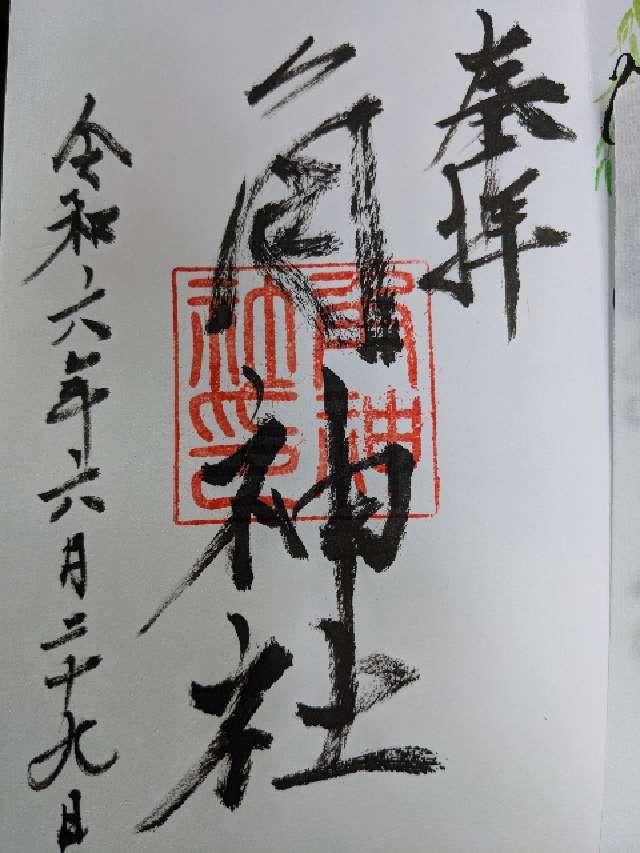 奉拝
神社
令和六年六月二十九日
神社印